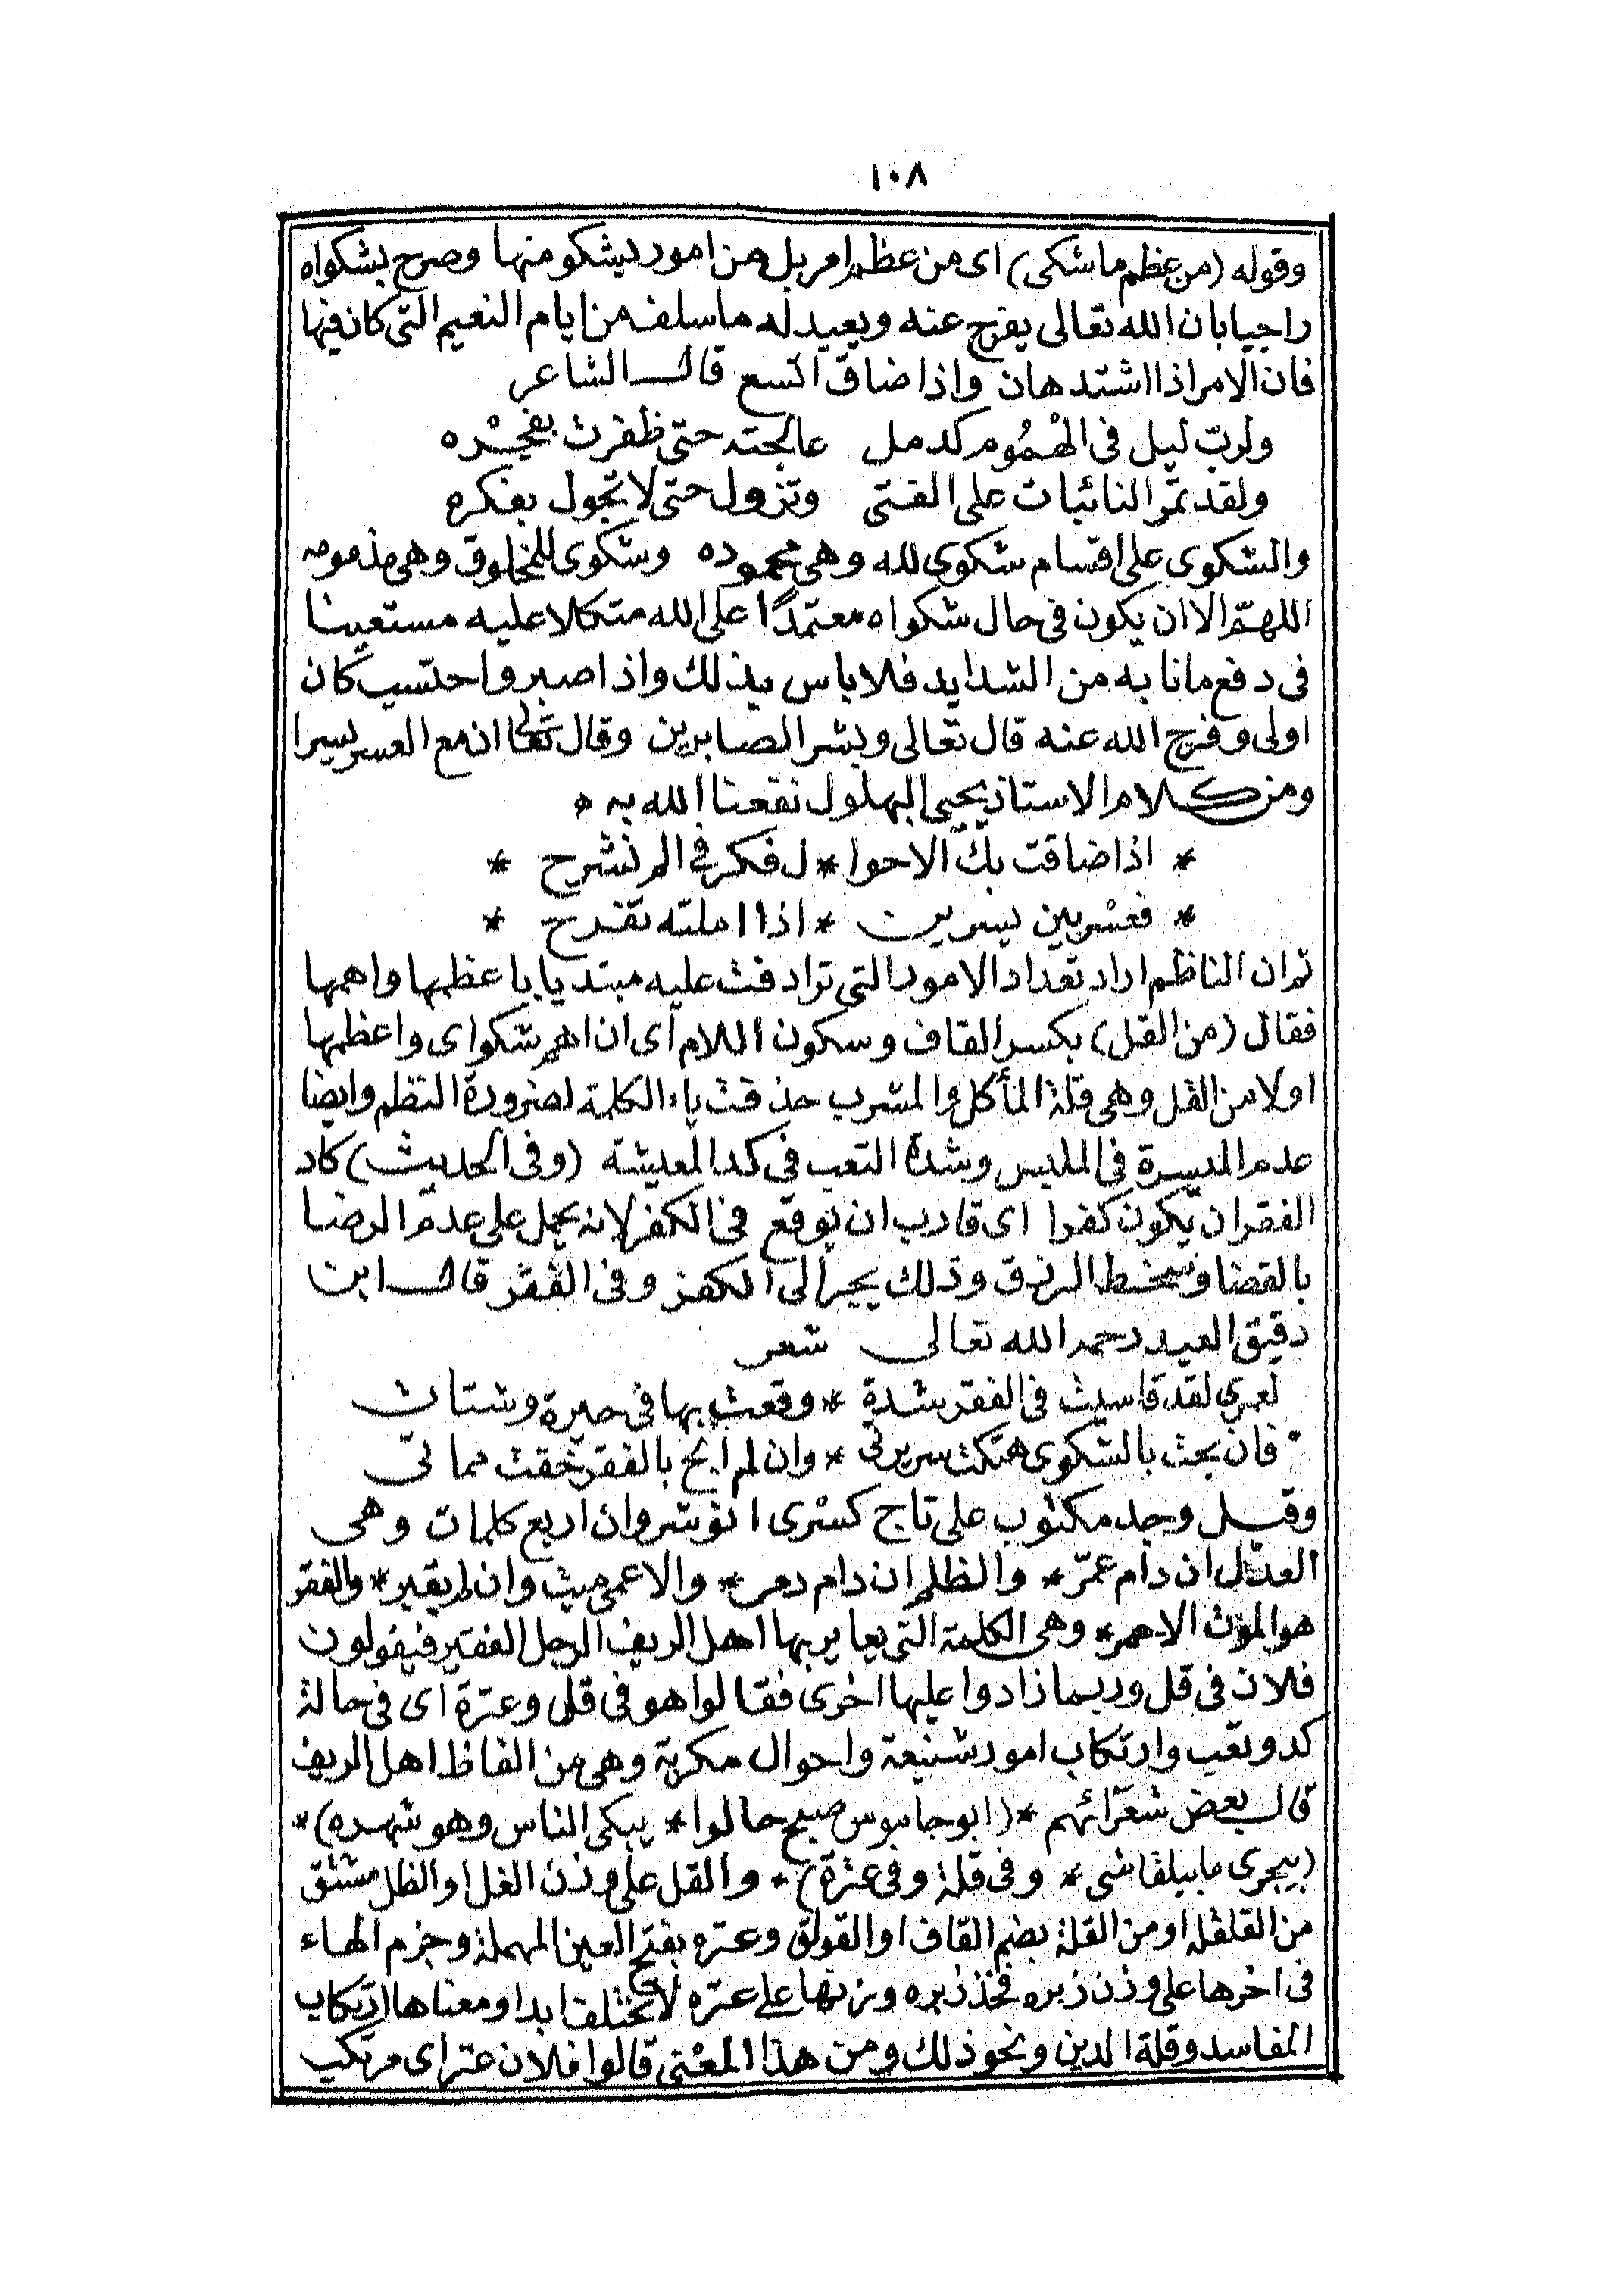 ١٠٨
وقوله (من عظم ما شكى) اى من عظم امر بل من امور يشكو منها وصرح بشكواه
راجيا بان الله تعالى يفرج عنه ويعيد له ما سلف من ايام النعيم التى كان فيها
فان الامر اذا اشتد هان واذا ضاق اتسع قال الشاعر
ولرب ليل فى الهْمُوم كدمل عالجته حتى ظفرت بفجْره
ولقد تمرّ النائبات على الفتى وتزول حتى لا تجول بفكره
والشكوى على اقسام شكوى لله وهى محموده وشكوى للمخلوق وهى مذمومه
اللهمّ الا ان يكون فى حال شكواه معتمدًا على الله متكلا عليه مستعينا
فى دفع ما نابه من الشدايد فلا باس بذلك واذا صبر واحتسب كان
اولى وفرج الله عنه قال تعالى وبشر الصابرين وقال تعالى ان مع العسر يسرا
ومن كلام الاستاذ يحيى البهلول نفعنا الله به ه
* اذا ضاقت بك الاحوا * ل فكر فى الم نشرح *
* فعسْر بين يسرين * اذا املته تفرح *
ثم ان الناظم اراد تعداد الامور التى ترادفت عليه مبتديا باعظمها واهمها
فقال (من القل) بكسر القاف وسكون اللام اى ان اهم شكواى واعظمها
اولا من القل وهى قلة المأكل والمشرب حذفت ياء الكلمة لضرورة النظم وايضا
عدم الميسرة فى الملبس وشدة التعب فى كد المعيشة (وفى الحديث) كاد
الفقر ان يكون كفرا اى قارب ان يوقع فى الكفر لانه يحمل على عدم الرضا
بالقضا وسخط الرزق وذلك يجر الى الكفر وفى الفقر قال ابن
دقيق العيد رحمه الله تعالى شعر
لعمرى لقد قاسيت فى الفقر شدة * وقعت بها فى حيرة وشتات
فان بحت بالشكوى هتكت سريرتى * وان لم ابح بالفقر خفت مماتى
وقيل وجد مكتوب على تاج كسْرى انوشروان اربع كلمات وهى
العدل ان دام عمّر * والظلم ان دام دمر * والاعمى ميت وان لم يقبر * والفقر
هو الموت الاحمر * وهى الكلمة التى يعاير بها اهل الريف الرجل الفقير فيقولون
فلان فى قل وربما زادوا عليها اخرى فقالوا هو فى قلى وعترة اى فى حالة
كد وتعب وارتكاب امور شنيعة واحوال مكربة وهى من الفاظ اهل الريف
قال بعض شعرائهم * (ابو جاموس صبح حالوا * يبكى الناس وهو شهده) *
(بيجرى ما بيلقاشى * وفى قلة وفى عترة) * والقل على وزن الغل او الظل مشتق
من القلقله او من القلة بضم القاف او القولق وعتره بفتح العين المهملة وجزم الهاء
فى اخرها على وزن زبره فخذ زبره وزنها على عتره لا تختلف ابدا ومعناها ارتكاب
المفاسد وقلة الدين ونحو ذلك ومن هذا المعْنى قالوا فلان عتر اى مرتكب